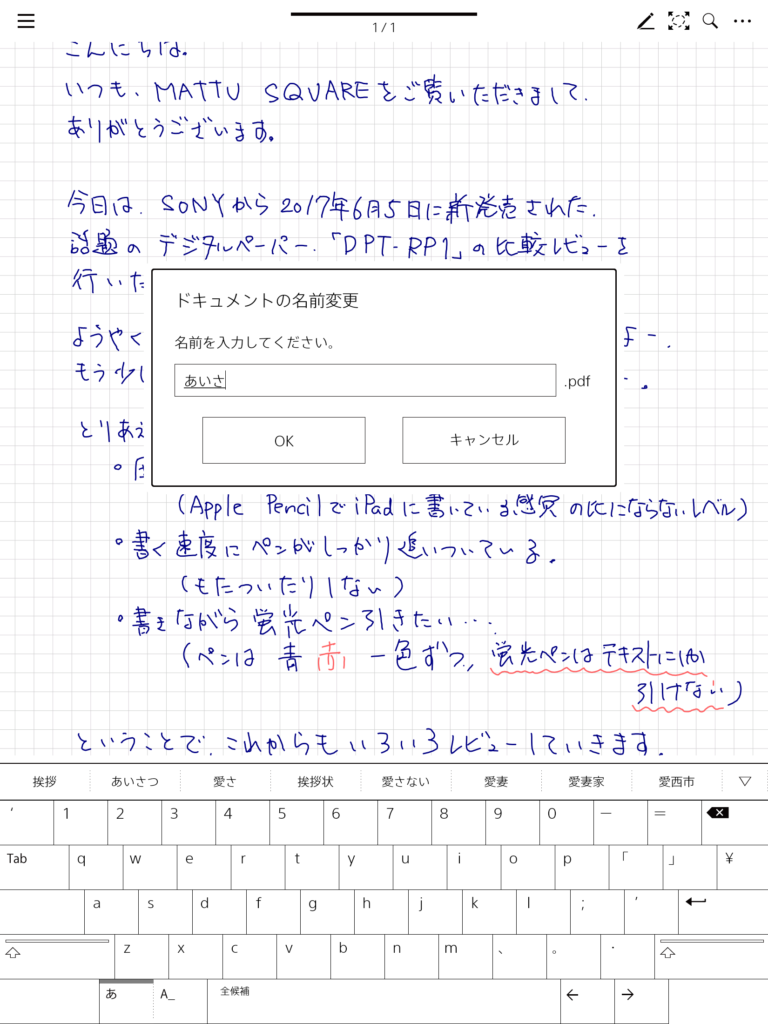 1/1
こんにちは。
いつも、MATTU SQUAREをご覧いただきまして、
ありがとうございます。
今日は、SONYから2017年6月5日に新発売された、
話題のデジタルペーパー、「DPT-RP1」の比較レビューを
行いた
ドキュメントの名前変更
名前を入力してください。
あいさ
.pdf
OK
キャンセル
ようやく
もう少し
とりあえ
(Apple PencilでiPadに書いている感覚の比にならないレベル)
・書く速度にペンがしっかり追いついている。
(もたついたりしない)
・書きながら蛍光ペン引きたい・・・
(ペンは青 赤 一色ずつ、蛍光ペンはテキストにしか
引けない)
ということで、これからもいろいろレビューしていきます。
挨拶 あいさつ 愛さ 挨拶状 愛さない 愛妻 愛妻家 愛西市 ▽
’ 1 2 3 4 5 6 7 8 9 0 － ＝
Tab q w e r t y u i o p 「 」 ¥
a s d f g h j k l ; ’
z x c v b n m 、 。 ・
あ A_ 全候補 ← →